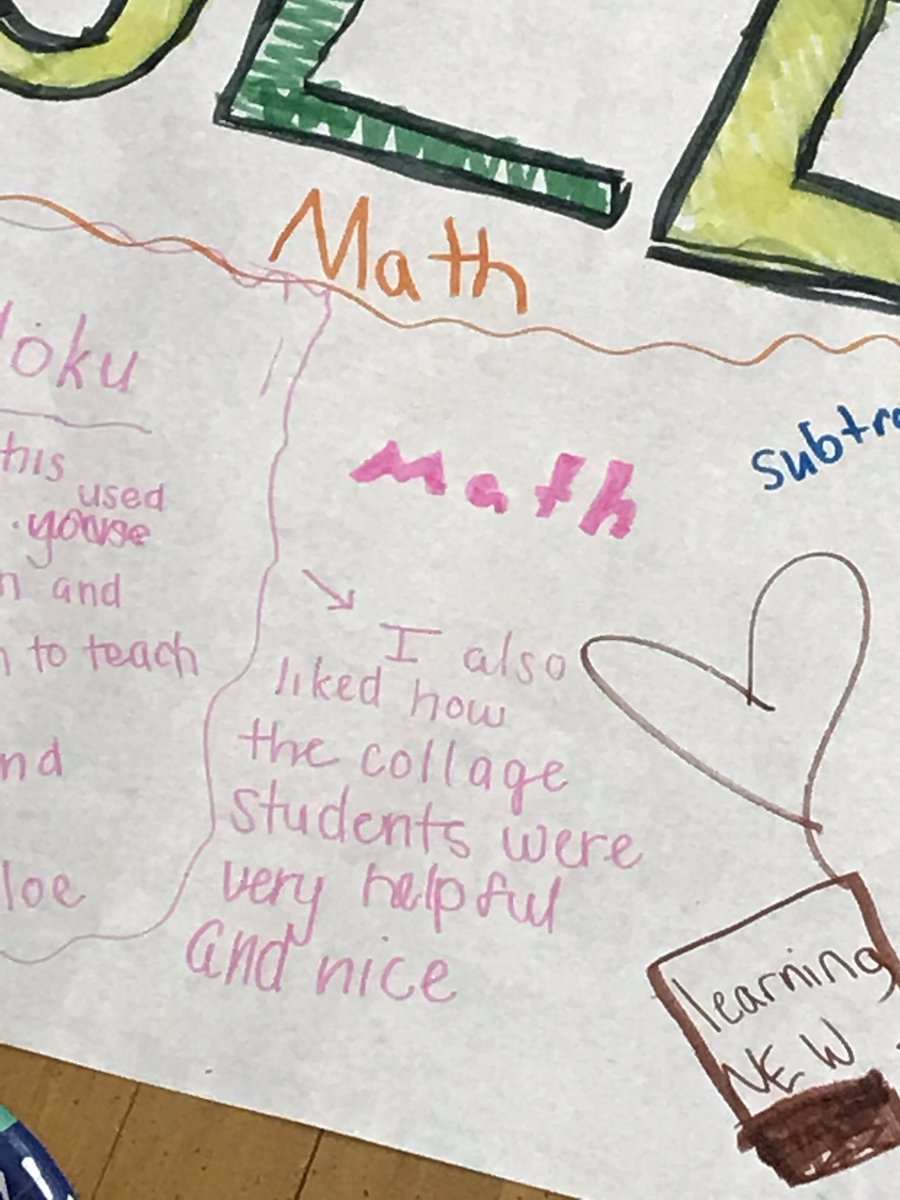 Math
oku
this
used
yourse
and
to teach
nd
loe
Math
I also
liked how
the collage
students were
very helpful
and nice
subtra
learning
NEW